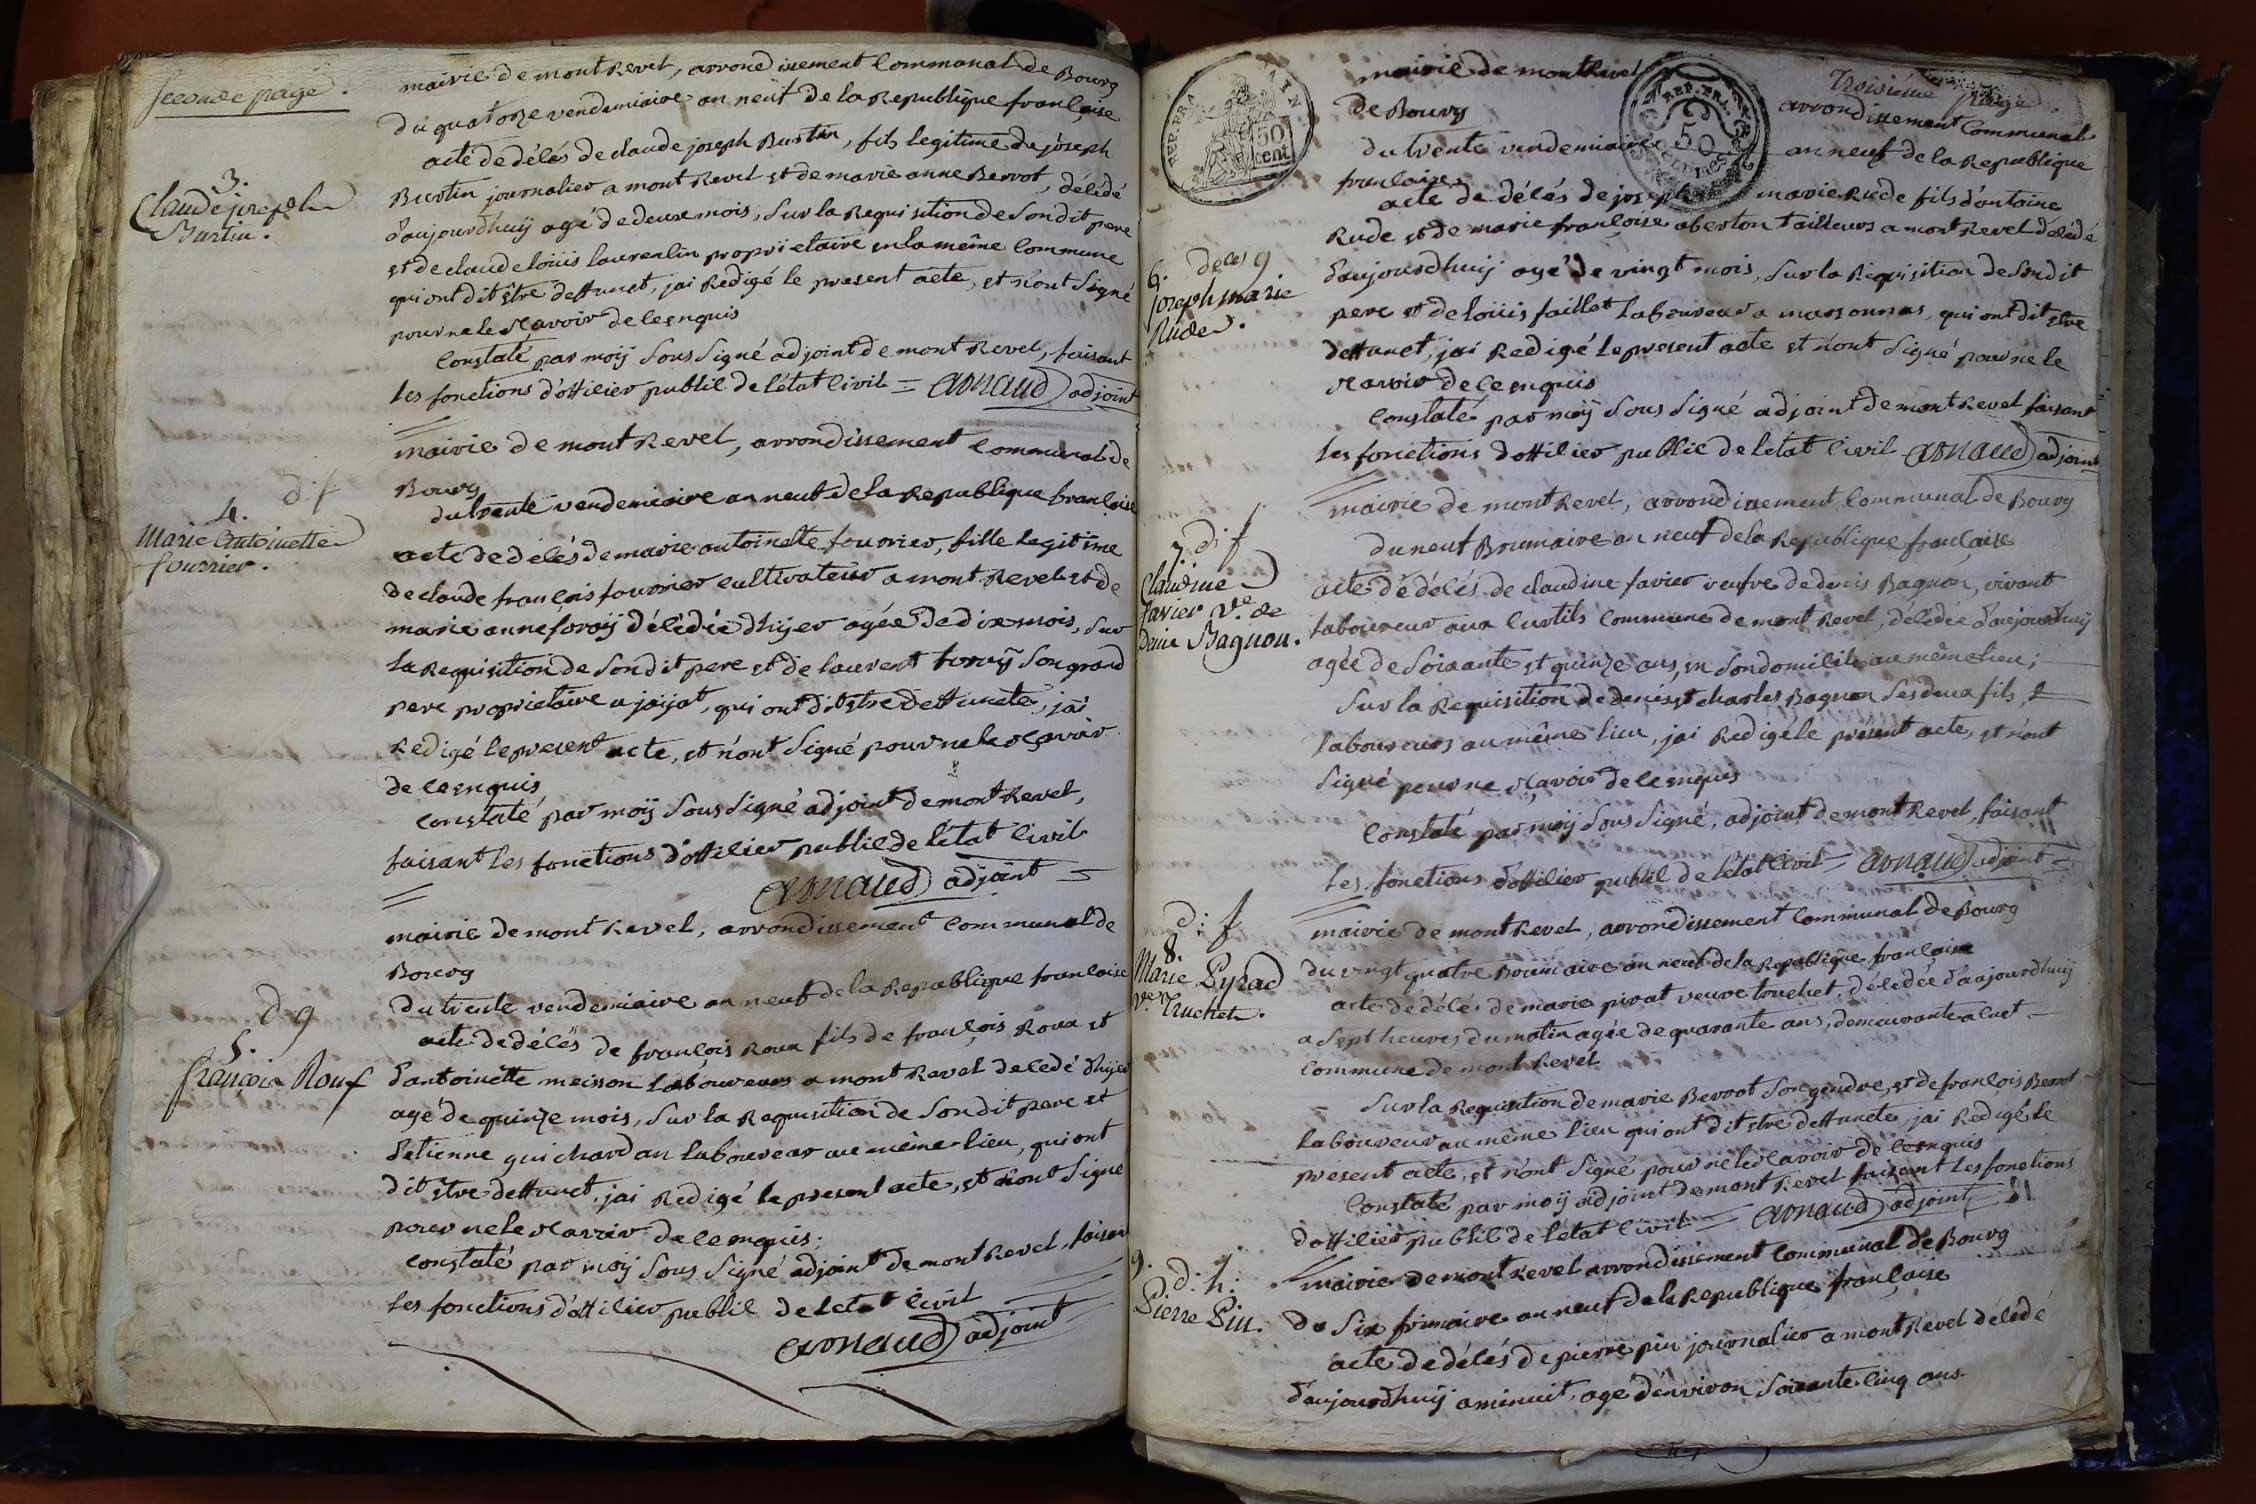 seconde page.
mairie de montRevel, arrondissement Communal de Bourg
du quatorze vendemiaire an neuf de la Republique française
acte de décés de claude joseph Burtin, fils legitime de joseph
3.
Claude joseph
Burtin.
Burtin journalier a mont Revel et de marie anne Berrot, décédé
d'aujourdhuij agé de deux mois, Sur la Requisition de Son dit pere
et de claude loüis laurentin proprietaire en la même Commune
qui ont dit être deffunct, jai Redigé le present acte, et n'ont Signé
pour ne le scavoir de ce enquis
Constaté par moÿ Sous Signé adjoint de mont Revel, faisant
les fonctions d'officier public de l'état Civil = arnaud adjoint
mairie de mont Revel, arrondissement Communal de
Bourg
d: f
4.
Marie Antoinette
fourrier.
du trente vendemiaire an neuf de la Republique française
acte de décés de marie antoinette fourrier, fille legitime
de claude françois fourrier cultivateur a mont Revel et de
marie anne foraÿ décédée d'hÿer agée de dix mois, Sur
la Requisition de Son dit pere et de laurent foraÿ Son grand
pere proprietaire a jaÿat, qui ont dit etre deffuncte, jai
Redigé le present acte, et n'ont Signé pour ne le scavoir
de ce enquis
Constaté par moÿ Sous Signé adjoint de mont Revel,
faisant les fonctions d'officier public de l'état Civil
arnaud adjoint
mairie de mont Revel, arrondissement Communal de
Bourg
d g
5.
françois Rouf
du trente vendemiaire an neuf de la Republique française
acte de décés de françois Roux fils de françois Roux et
d'antoinette meisson laboureurs a mont Revel decedé d'hÿer
agé de quinze mois, Sur la Requisition de Son dit pere et
d'etienne guichardan laboureur au même lieu, qui ont
dit être deffunct, jai Redigé le present acte, et n'ont Signé
pour ne le scavoir de ce enquis;
Constaté par moÿ Sous Signé adjoint de mont Revel, faisant
les fonctions d'officier public de l'etat Civil
arnaud adjoint
REP. FRA.
50
cent
REP. FRA.
50
CENTIMES
Troisiéme page
mairie de montRevel arrondissement Communal
de Bourg
du trente vendemiaire an neuf de la Republique
française
acte de décés de joseph marie Rude fils d'antoine
Rude et de marie françoise aberton tailleurs a mont Revel décédé
6. deces g
joseph marie
Rude.
d'aujourdhuij agé de vingt mois, Sur la Requisition de Son dit
pere et de loüis faillet laboureur a marsonnas, qui ont dit etre
deffunct, jai Redigé le present acte et n'ont Signé pour ne le
scavoir de ce enquis
Constaté par moÿ Sous Signé adjoint de mont Revel faisant
les fonctions d'officier public de l'etat Civil arnaud adjoint
mairie de mont Revel, arrondissement Communal de Bourg
7. d: f
Claudine
favier Ve. de
Denis Bagnon.
du neuf Brumaire an neuf de la Republique française
acte de décés de claudine favier veufve de denis Bagnon, vivant
laboureur aux Curtils Commune de mont Revel, décédée d'aujourdhuij
agée de Soixante et quinze ans, en Son domicile au même lieu;
Sur la Requisition de denis et charles Bagnon Ses deux fils,
laboureurs au même lieu, jai Redigé le présent acte, et n'ont
Signé pour ne scavoir de ce enquis
Constaté par moÿ Sous Signé, adjoint de mont Revel, faisant
les fonctions d'officier public de l'état Civil = arnaud adjoint =
d: f
8.
Marie Pyrad
Ve. Truchet.
mairie de mont Revel, arrondissement Communal de Bourg
du vingt quatre Brumaire an neuf de la Republique française
acte de décés de marie pirat veuve truchet, décédée d'aujourdhuij
a Sept heures du matin agée de quarante ans, demeurante a Cuet
Commune de mont Revel
Sur la Requisition de marie Berrot Son gendre, et de françois Berrot
laboureur au même lieu qui ont dit etre deffuncte, jai Redigé le
present acte, et n'ont Signé pour ne le scavoir de ce enquis
Constaté par moÿ adjoint de mont Revel faisant les fonctions
d'officier public de l'état Civil = arnaud adjoint
9. d: h:
Pierre Pin.
mairie de mont Revel arrondissement Communal de Bourg
du Six frimaire an neuf de la Republique française
acte de décés de pierre pin journalier a mont Revel décédé
d'aujourdhuij a minuit, agé d'environ Soixante cinq ans.